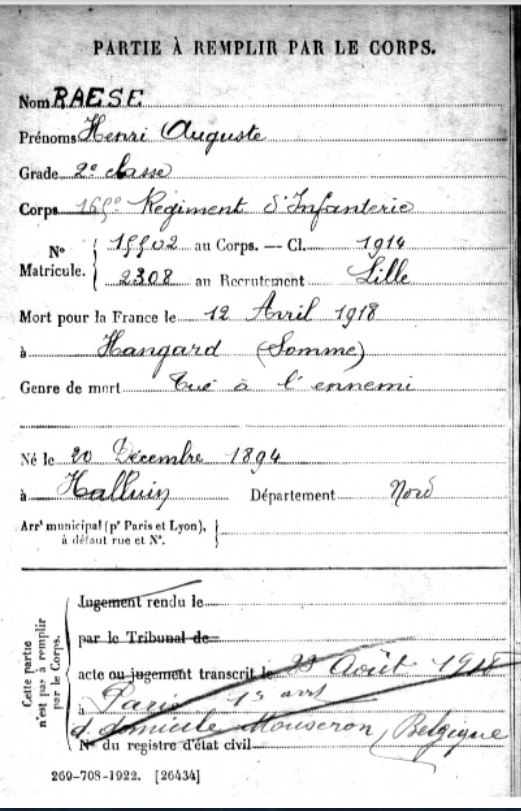 PARTIE À REMPLIR PAR LE CORPS.
Nom RAESE
Prénoms Henri Auguste
Grade 2e classe
Corps 169e Régiment d'Infanterie
No Matricule. 15502 au Corps. — Cl. 1914
2308 au Recrutement Lille
Mort pour la France le 12 Avril 1918
à Hangard (Somme)
Genre de mort Tué à l'ennemi
Né le 20 Décembre 1894
à Halluin Département Nord
Arrt municipal (pr Paris et Lyon),
à défaut rue et No.
Cette partie
n'est pas à remplir
par le Corps.
Jugement rendu le
par le Tribunal de
acte ou jugement transcrit le Août
à Paris 13 arrt
d. domicile Mouscron, Belgique
No du registre d'état civil
269-708-1922. [26434]